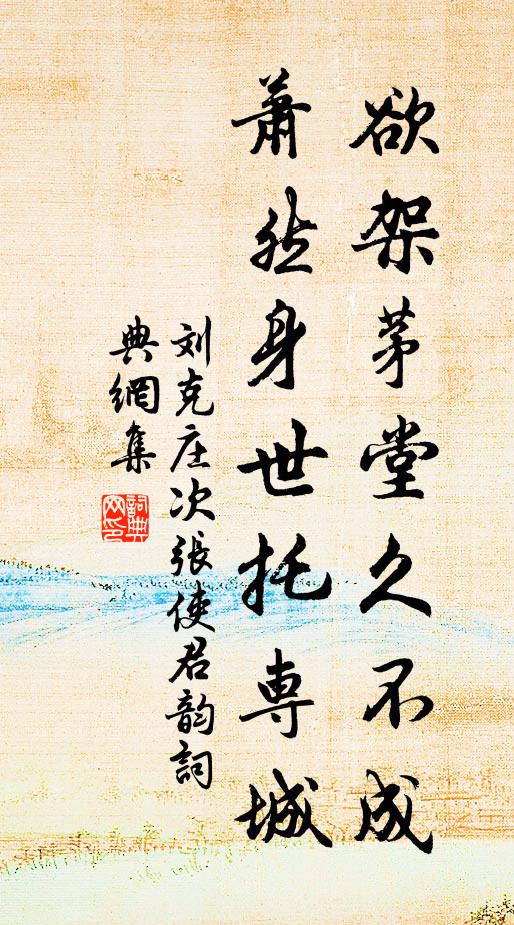 欲架茅堂久不成
蕭然身世托専城
刘克庄次張使君韵詞
典網集
詞典網印